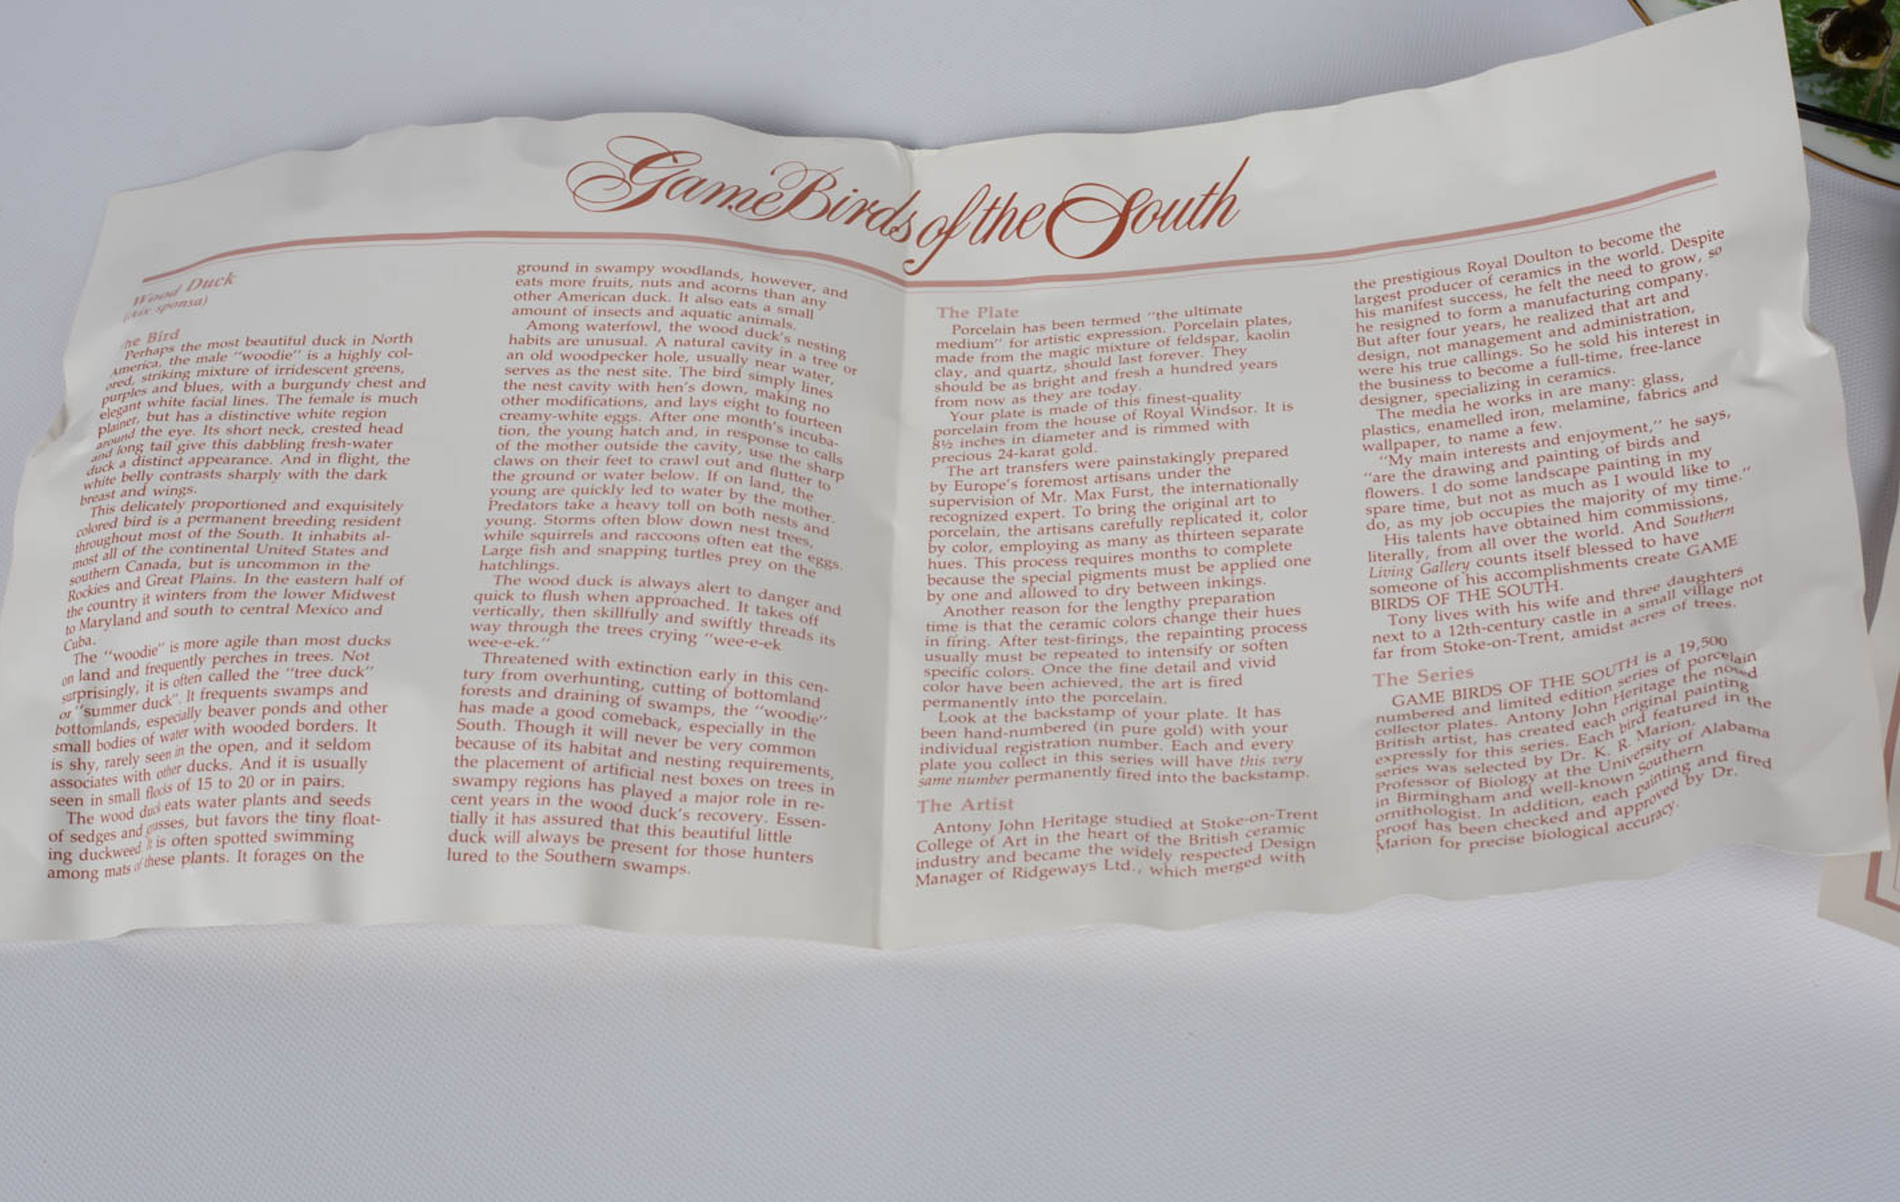 Game Birds of the South
Wood Duck
(Aix sponsa)
he Bird
Perhaps the most beautiful duck in North
America, the male "woodie" is a highly col-
ored, striking mixture of irridescent greens,
purples and blues, with a burgundy chest and
elegant white facial lines. The female is much
plainer, but has a distinctive white region
around the eye. Its short neck, crested head
and long tail give this dabbling fresh-water
duck a distinct appearance. And in flight, the
white belly contrasts sharply with the dark
breast and wings.
This delicately proportioned and exquisitely
colored bird is a permanent breeding resident
throughout most of the South. It inhabits al-
most all of the continental United States and
southern Canada, but is uncommon in the
Rockies and Great Plains. In the eastern half of
the country it winters from the lower Midwest
to Maryland and south to central Mexico and
Cuba.
The "woodie" is more agile than most ducks
on land and frequently perches in trees. Not
surprisingly, it is often called the "tree duck"
or "summer duck". It frequents swamps and
bottomlands, especially beaver ponds and other
small bodies of water with wooded borders. It
is shy, rarely seen in the open, and it seldom
associates with other ducks. And it is usually
seen in small flocks of 15 to 20 or in pairs.
The wood duck eats water plants and seeds
of sedges and grasses, but favors the tiny float-
ing duckweed. It is often spotted swimming
among mats of these plants. It forages on the
ground in swampy woodlands, however, and
eats more fruits, nuts and acorns than any
other American duck. It also eats a small
amount of insects and aquatic animals.
Among waterfowl, the wood duck's nesting
habits are unusual. A natural cavity in a tree or
an old woodpecker hole, usually near water,
serves as the nest site. The bird simply lines
the nest cavity with hen's down, making no
other modifications, and lays eight to fourteen
creamy-white eggs. After one month's incuba-
tion, the young hatch and, in response to calls
of the mother outside the cavity, use the sharp
claws on their feet to crawl out and flutter to
the ground or water below. If on land, the
young are quickly led to water by the mother.
Predators take a heavy toll on both nests and
young. Storms often blow down nest trees,
while squirrels and raccoons often eat the eggs.
Large fish and snapping turtles prey on the
hatchlings.
The wood duck is always alert to danger and
quick to flush when approached. It takes off
vertically, then skillfully and swiftly threads its
way through the trees crying "wee-e-eek
wee-e-ek."
Threatened with extinction early in this cen-
tury from overhunting, cutting of bottomland
forests and draining of swamps, the "woodie"
has made a good comeback, especially in the
South. Though it will never be very common
because of its habitat and nesting requirements,
the placement of artificial nest boxes on trees in
swampy regions has played a major role in re-
cent years in the wood duck's recovery. Essen-
tially it has assured that this beautiful little
duck will always be present for those hunters
lured to the Southern swamps.
The Plate
Porcelain has been termed "the ultimate
medium" for artistic expression. Porcelain plates,
made from the magic mixture of feldspar, kaolin
clay, and quartz, should last forever. They
should be as bright and fresh a hundred years
from now as they are today.
Your plate is made of this finest-quality
porcelain from the house of Royal Windsor. It is
8½ inches in diameter and is rimmed with
precious 24-karat gold.
The art transfers were painstakingly prepared
by Europe's foremost artisans under the
supervision of Mr. Max Furst, the internationally
recognized expert. To bring the original art to
porcelain, the artisans carefully replicated it, color
by color, employing as many as thirteen separate
hues. This process requires months to complete
because the special pigments must be applied one
by one and allowed to dry between inkings.
Another reason for the lengthy preparation
time is that the ceramic colors change their hues
in firing. After test-firings, the repainting process
usually must be repeated to intensify or soften
specific colors. Once the fine detail and vivid
color have been achieved, the art is fired
permanently into the porcelain.
Look at the backstamp of your plate. It has
been hand-numbered (in pure gold) with your
individual registration number. Each and every
plate you collect in this series will have this very
same number permanently fired into the backstamp.
The Artist
Antony John Heritage studied at Stoke-on-Trent
College of Art in the heart of the British ceramic
industry and became the widely respected Design
Manager of Ridgeways Ltd., which merged with
the prestigious Royal Doulton to become the
largest producer of ceramics in the world. Despite
his manifest success, he felt the need to grow, so
he resigned to form a manufacturing company.
But after four years, he realized that art and
design, not management and administration,
were his true callings. So he sold his interest in
the business to become a full-time, free-lance
designer, specializing in ceramics.
The media he works in are many: glass,
plastics, enamelled iron, melamine, fabrics and
wallpaper, to name a few.
"My main interests and enjoyment," he says,
"are the drawing and painting of birds and
flowers. I do some landscape painting in my
spare time, but not as much as I would like to
do, as my job occupies the majority of my time."
His talents have obtained him commissions,
literally, from all over the world. And Southern
Living Gallery counts itself blessed to have
someone of his accomplishments create GAME
BIRDS OF THE SOUTH.
Tony lives with his wife and three daughters
next to a 12th-century castle in a small village not
far from Stoke-on-Trent, amidst acres of trees.
The Series
GAME BIRDS OF THE SOUTH is a 19,500
numbered and limited edition series of porcelain
collector plates. Antony John Heritage the noted
British artist, has created each original painting
expressly for this series. Each bird featured in the
series was selected by Dr. K. R. Marion,
Professor of Biology at the University of Alabama
in Birmingham and well-known Southern
ornithologist. In addition, each painting and fired
proof has been checked and approved by Dr.
Marion for precise biological accuracy.